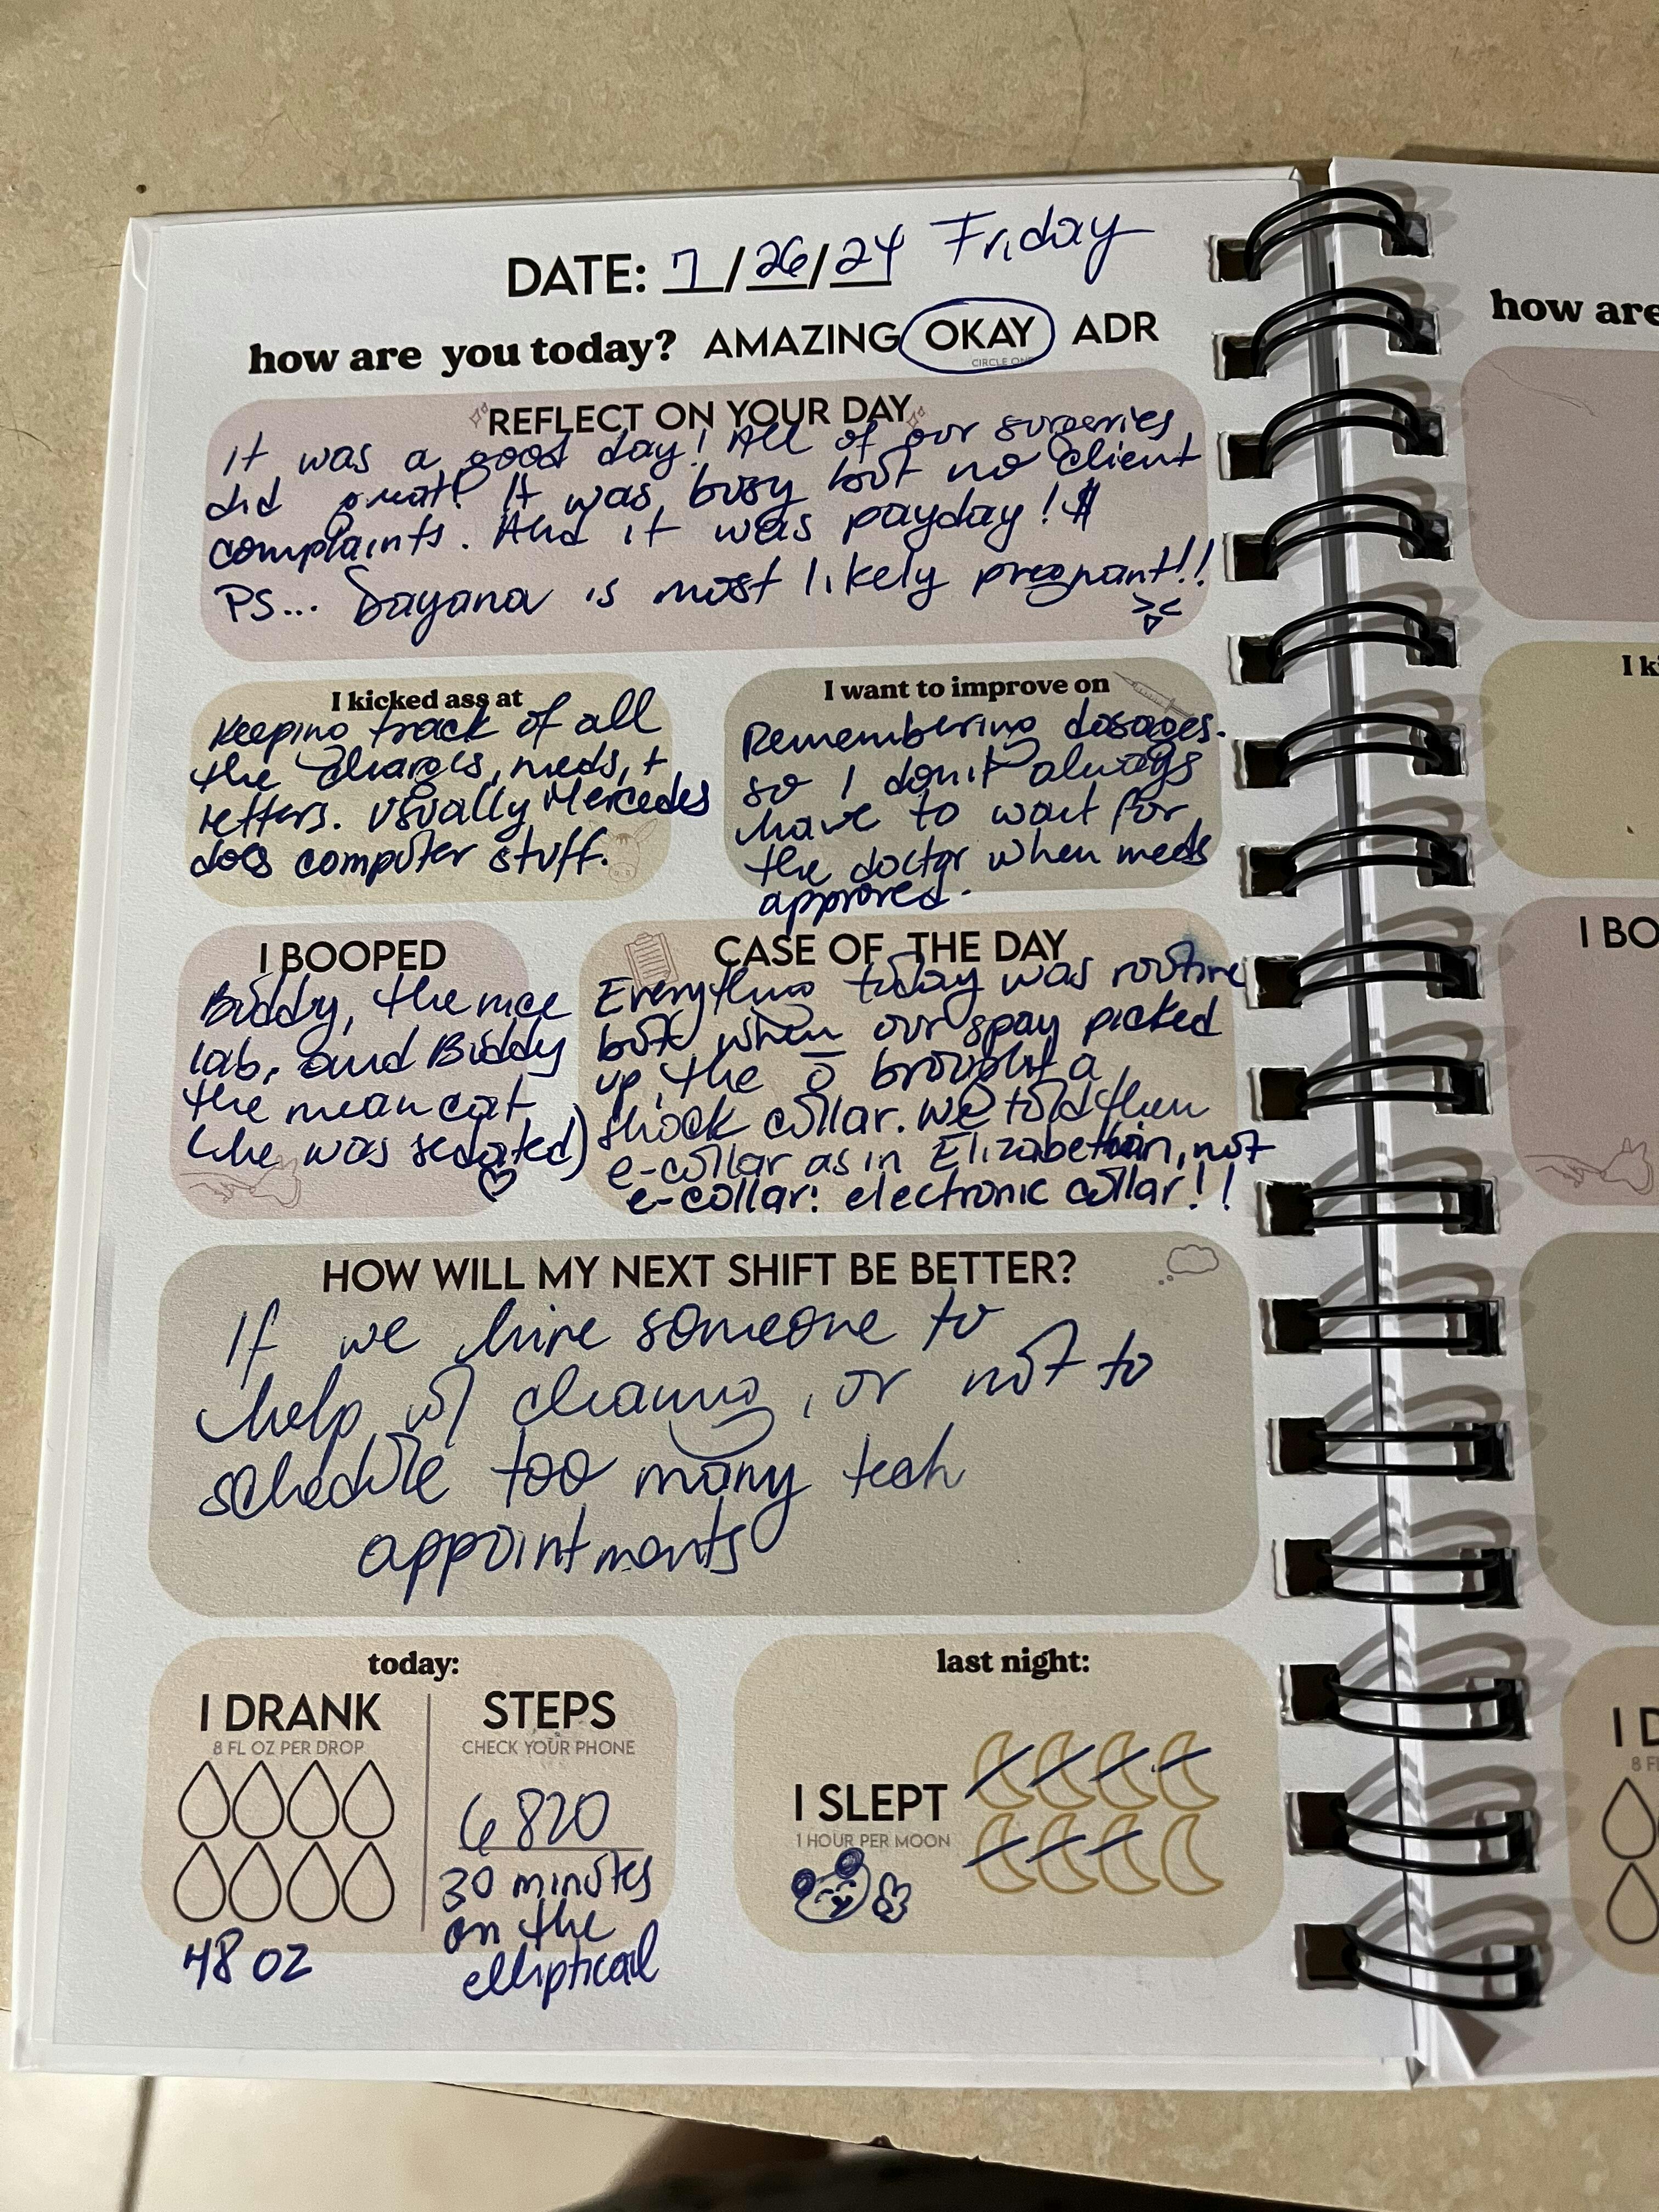 DATE: 7/26/24 Friday
how are you today? AMAZING OKAY ADR
CIRCLE ONE
REFLECT ON YOUR DAY
It was a good day! All of our surgeries
did great! It was busy but no client
complaints. And it was payday! $
PS... Dayana is most likely pregnant!!
I kicked ass at
Keeping track of all
the charges, meds, +
letters. Usually Mercedes
does computer stuff.
I want to improve on
Remembering dosages.
so I don't always
have to wait for
the doctor when meds
approved.
I BOOPED
Buddy, the nice
lab, and Biddy
the mean cat
(he was sedated)
CASE OF THE DAY
Everything today was routine
but when our spay picked
up, the o brought a
shock collar. We told them
e-collar as in Elizabethan, not
e-collar: electronic collar!!
HOW WILL MY NEXT SHIFT BE BETTER?
If we hire someone to
help w/ cleaning, or not to
schedule too many tech
appointments
today:
I DRANK
8 FL OZ PER DROP
48 oz
STEPS
CHECK YOUR PHONE
6820
30 minutes
on the
elliptical
last night:
I SLEPT
1 HOUR PER MOON
how are
I ki
I BO
I D
8 Fl